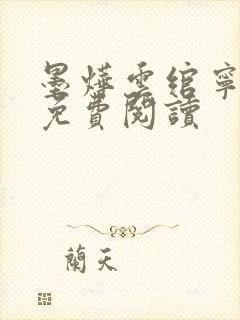 墨燁雲綰寧
免費閱讀
蘭天